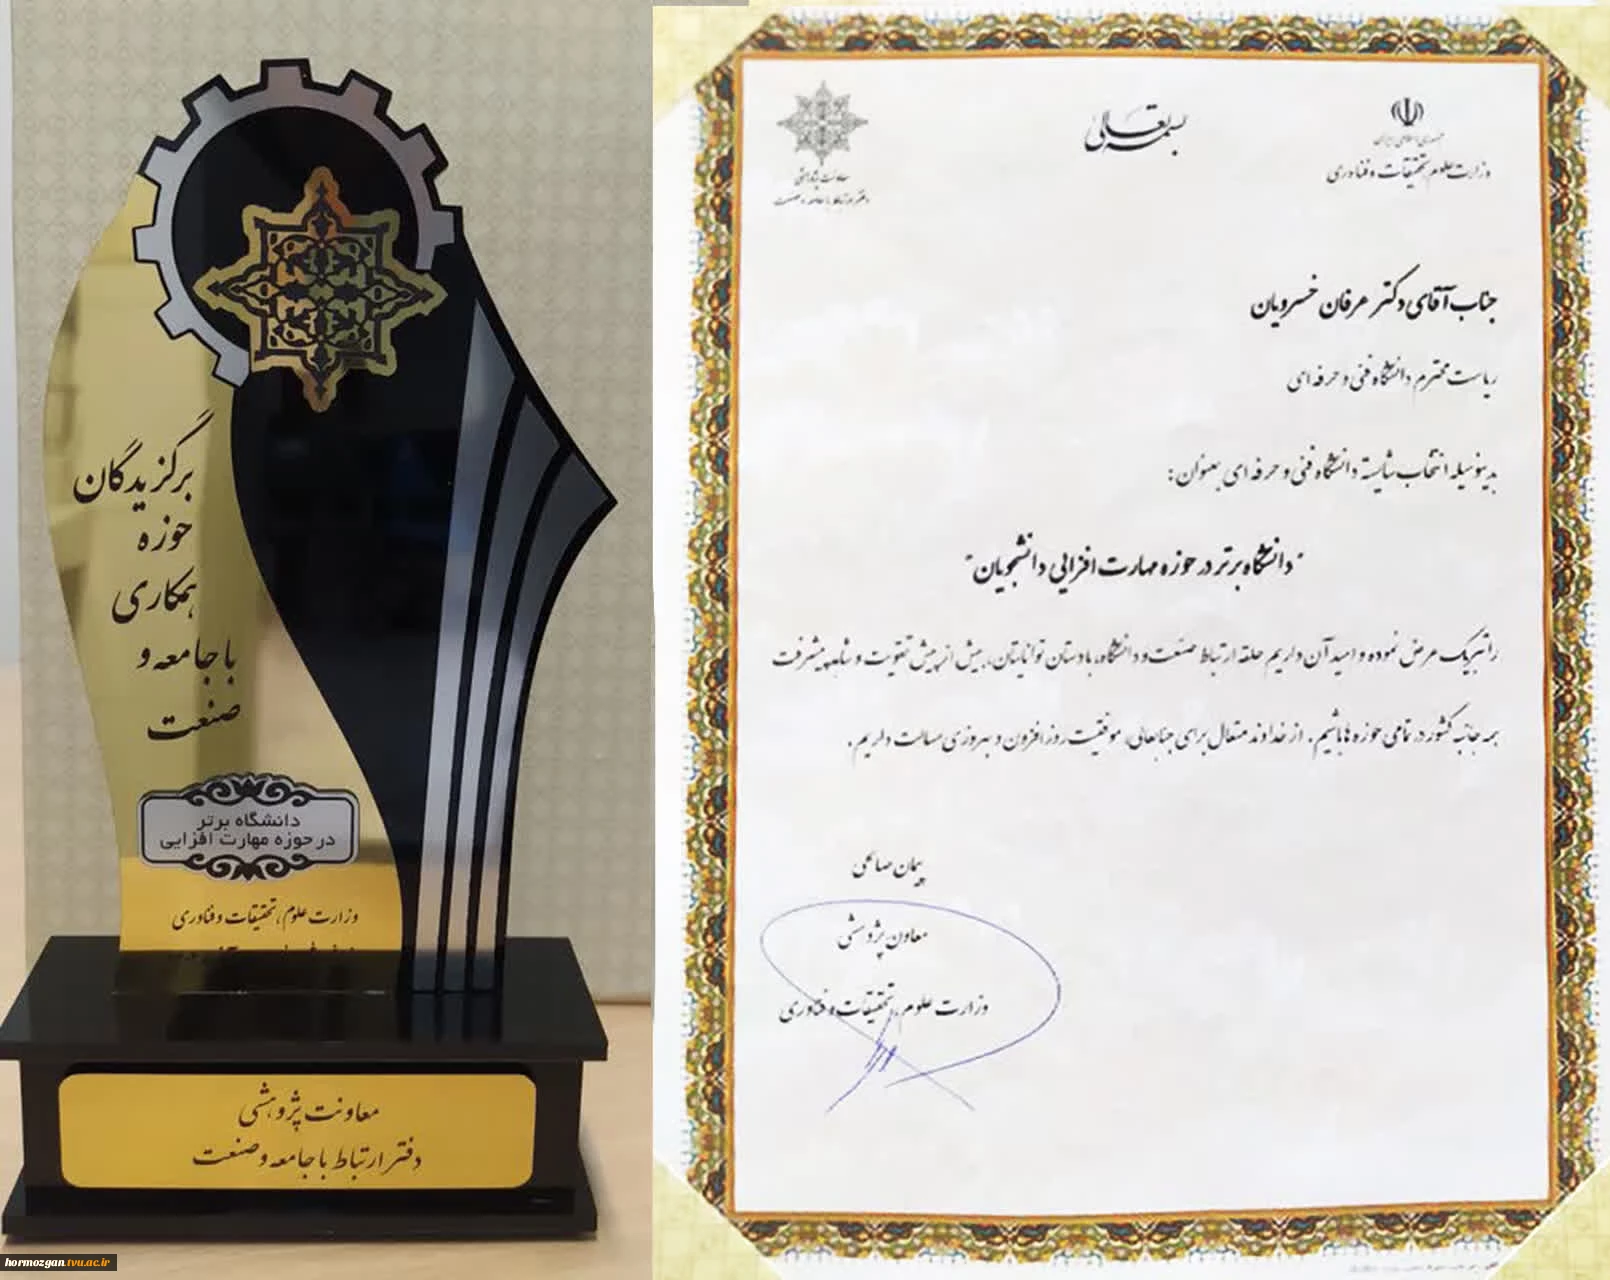 برگزیدگان
حوزه
همکاری
با جامعه و
صنعت
دانشگاه برتر
در حوزه مهارت افزایی
وزارت علوم، تحقیقات و فناوری
معاونت پژوهشی
دفتر ارتباط با جامعه و صنعت
hormozgan.tvu.ac.ir
بسمه تعالی
جمهوری اسلامی ایران
وزارت علوم، تحقیقات و فناوری
معاونت پژوهشی
دفتر ارتباط با جامعه و صنعت
جناب آقای دکتر عرفان خسرویان
ریاست محترم دانشگاه فنی و حرفه ای
بدینوسیله انتخاب شایسته دانشگاه فنی و حرفه ای بعنوان:
"دانشگاه برتر در حوزه مهارت افزایی دانشجویان"
را تبریک عرض نموده و امید آن داریم حلقه ارتباط صنعت و دانشگاه، با دستان توانایتان، بیش از پیش تقویت و شاهد پیشرفت
همه جانبه کشور در تمامی حوزه ها باشیم. از خداوند متعال برای جنابعالی، موفقیت روز افزون و بهروزی مسالت داریم.
پیمان صالحی
معاون پژوهشی
وزارت علوم، تحقیقات و فناوری